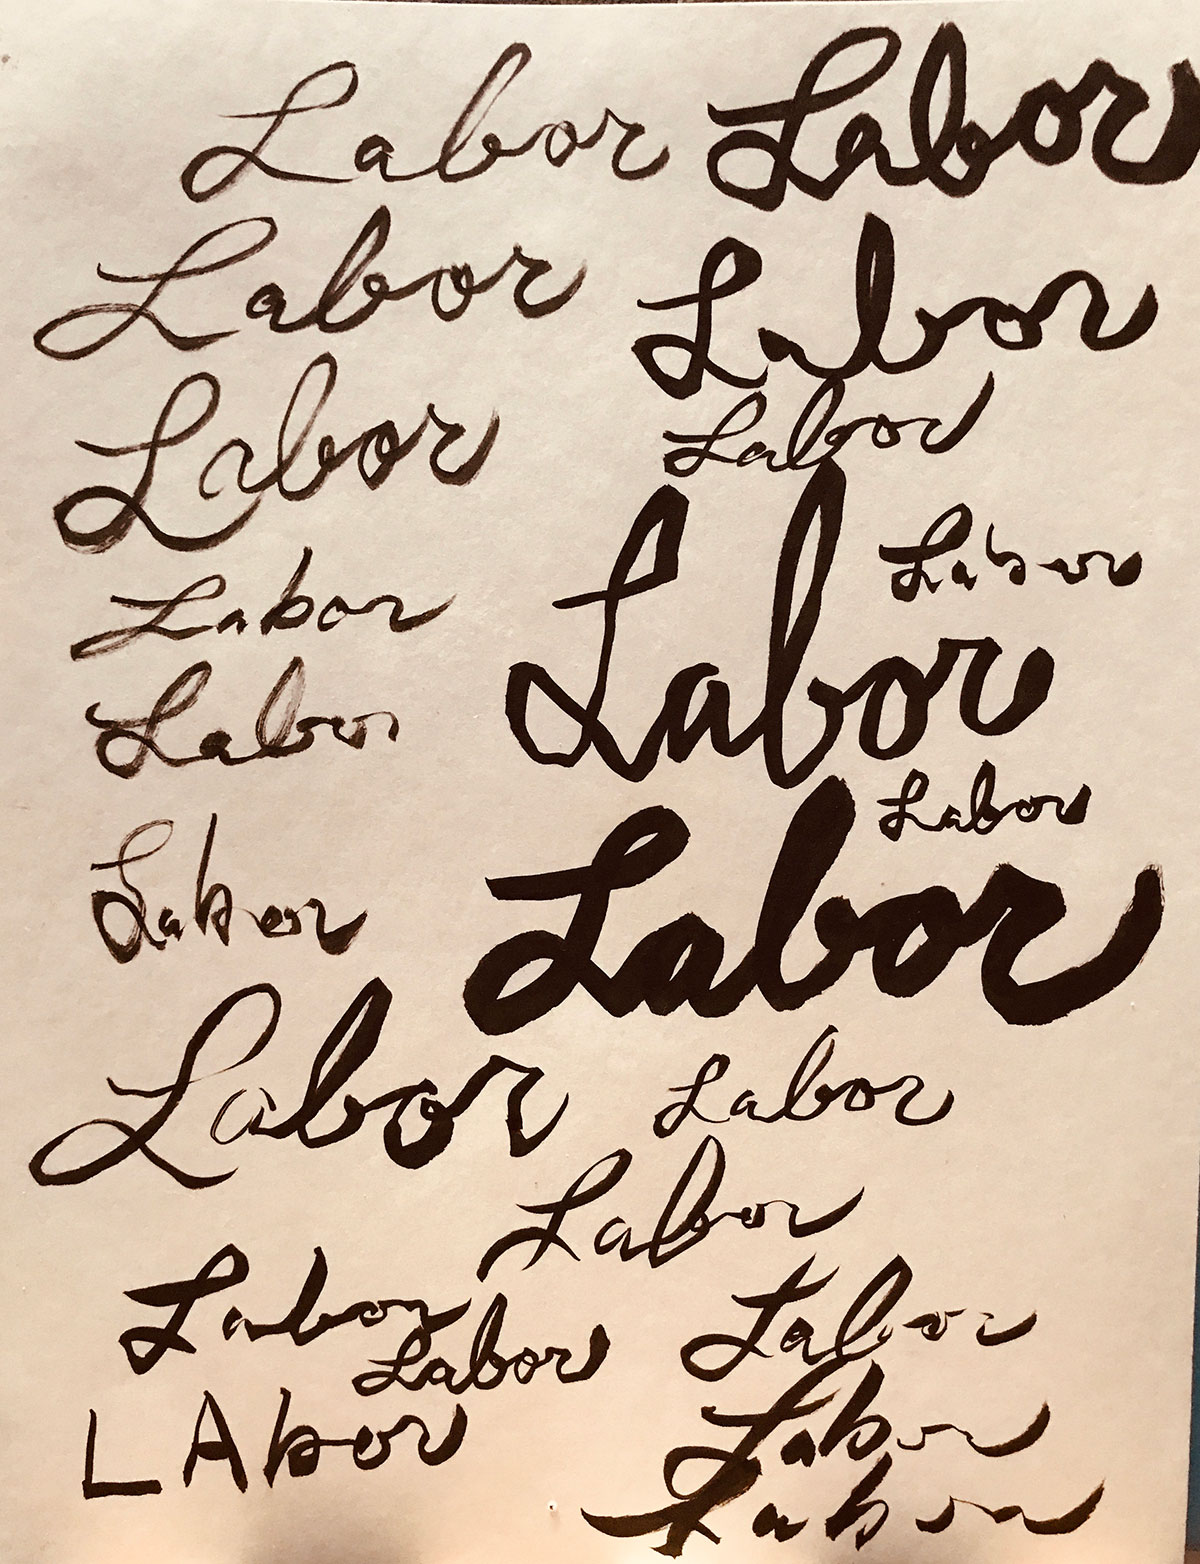 Labor Labor
Labor Labor
Labor Labor
Labor
Labor Labor
Labor
Labor
Labor Labor
Labor Labor
Labor
Labor Labor
Labor
LAbor Labor
Labor